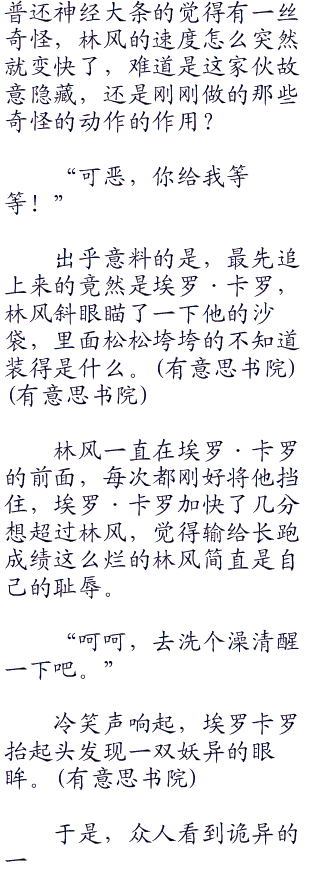 普还神经大条的觉得有一丝
奇怪，林风的速度怎么突然
就变快了，难道是这家伙故
意隐藏，还是刚刚做的那些
奇怪的动作的作用？
“可恶，你给我等
等！”
出乎意料的是，最先追
上来的竟然是埃罗·卡罗，
林风斜眼瞄了一下他的沙
袋，里面松松垮垮的不知道
装得是什么。(有意思书院)
(有意思书院)
林风一直在埃罗·卡罗
的前面，每次都刚好将他挡
住，埃罗·卡罗加快了几分
想超过林风，觉得输给长跑
成绩这么烂的林风简直是自
己的耻辱。
“呵呵，去洗个澡清醒
一下吧。”
冷笑声响起，埃罗卡罗
抬起头发现一双妖异的眼
眸。(有意思书院)
于是，众人看到诡异的
一